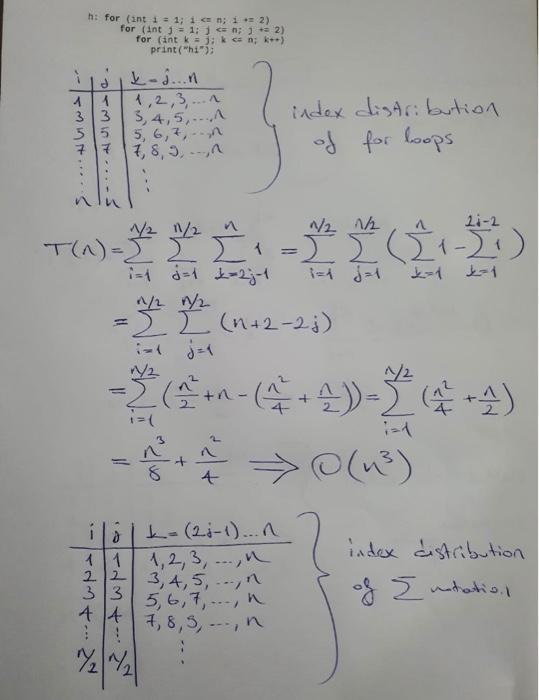 h: for (int i = 1; i <= n; i += 2)
for (int j = 1; j <= n; j += 2)
for (int k = j; k <= n; k++)
print("hi");
i | j | k = j...n
1 | 1 | 1, 2, 3, ... n
3 | 3 | 3, 4, 5, ..., n
5 | 5 | 5, 6, 7, ..., n
7 | 7 | 7, 8, 9, ..., n
⋮ | ⋮ | ⋮
n | n
index distribution
of for loops
T(n) = ∑_{i=1}^{n/2} ∑_{j=1}^{n/2} ∑_{k=2j-1}^{n} 1 = ∑_{i=1}^{n/2} ∑_{j=1}^{n/2} (∑_{k=1}^{n} 1 - ∑_{k=1}^{2j-2} 1)
= ∑_{i=1}^{n/2} ∑_{j=1}^{n/2} (n+2-2j)
= ∑_{i=1}^{n/2} (n²/2 + n - (n²/4 + n/2)) = ∑_{i=1}^{n/2} (n²/4 + n/2)
= n³/8 + n²/4 ⟹ O(n³)
i | j | k = (2j-1)...n
1 | 1 | 1, 2, 3, ..., n
2 | 2 | 3, 4, 5, ..., n
3 | 3 | 5, 6, 7, ..., n
4 | 4 | 7, 8, 9, ..., n
⋮ | ⋮ | ⋮
n/2 | n/2
index distribution
of ∑ notation